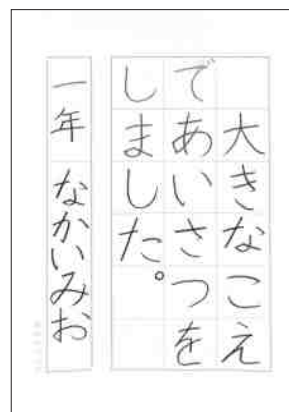 大きなこえ
であいさつを
しました。
一年 なかいみお